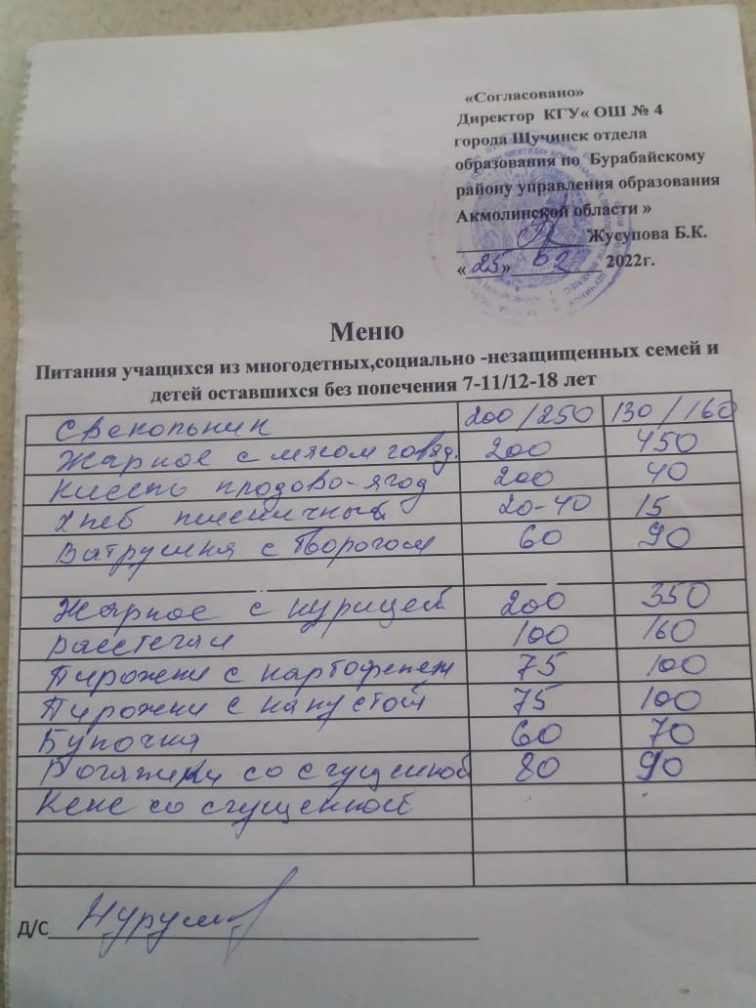 «Согласовано»
Директор КГУ« ОШ № 4
города Щучинск отдела
образования по Бурабайскому
району управления образования
Акмолинской области »
Жусупова Б.К.
« 25 » 02 2022г.
Меню
Питания учащихся из многодетных,социально -незащищенных семей и
детей оставшихся без попечения 7-11/12-18 лет
Свекольник 200/250 130/160
Жаркое с мясом говяд. 200 450
Кисель плодово-ягод 200 40
Хлеб пшеничный 20-40 15
Ватрушка с творогом 60 90
Жаркое с курицей 200 350
Расстегаи 100 160
Пирожки с картофелем 75 100
Пирожки с капустой 75 100
Булочка 60 70
Рогалики со сгущенкой 80 90
Кекс со сгущенкой
Д/С